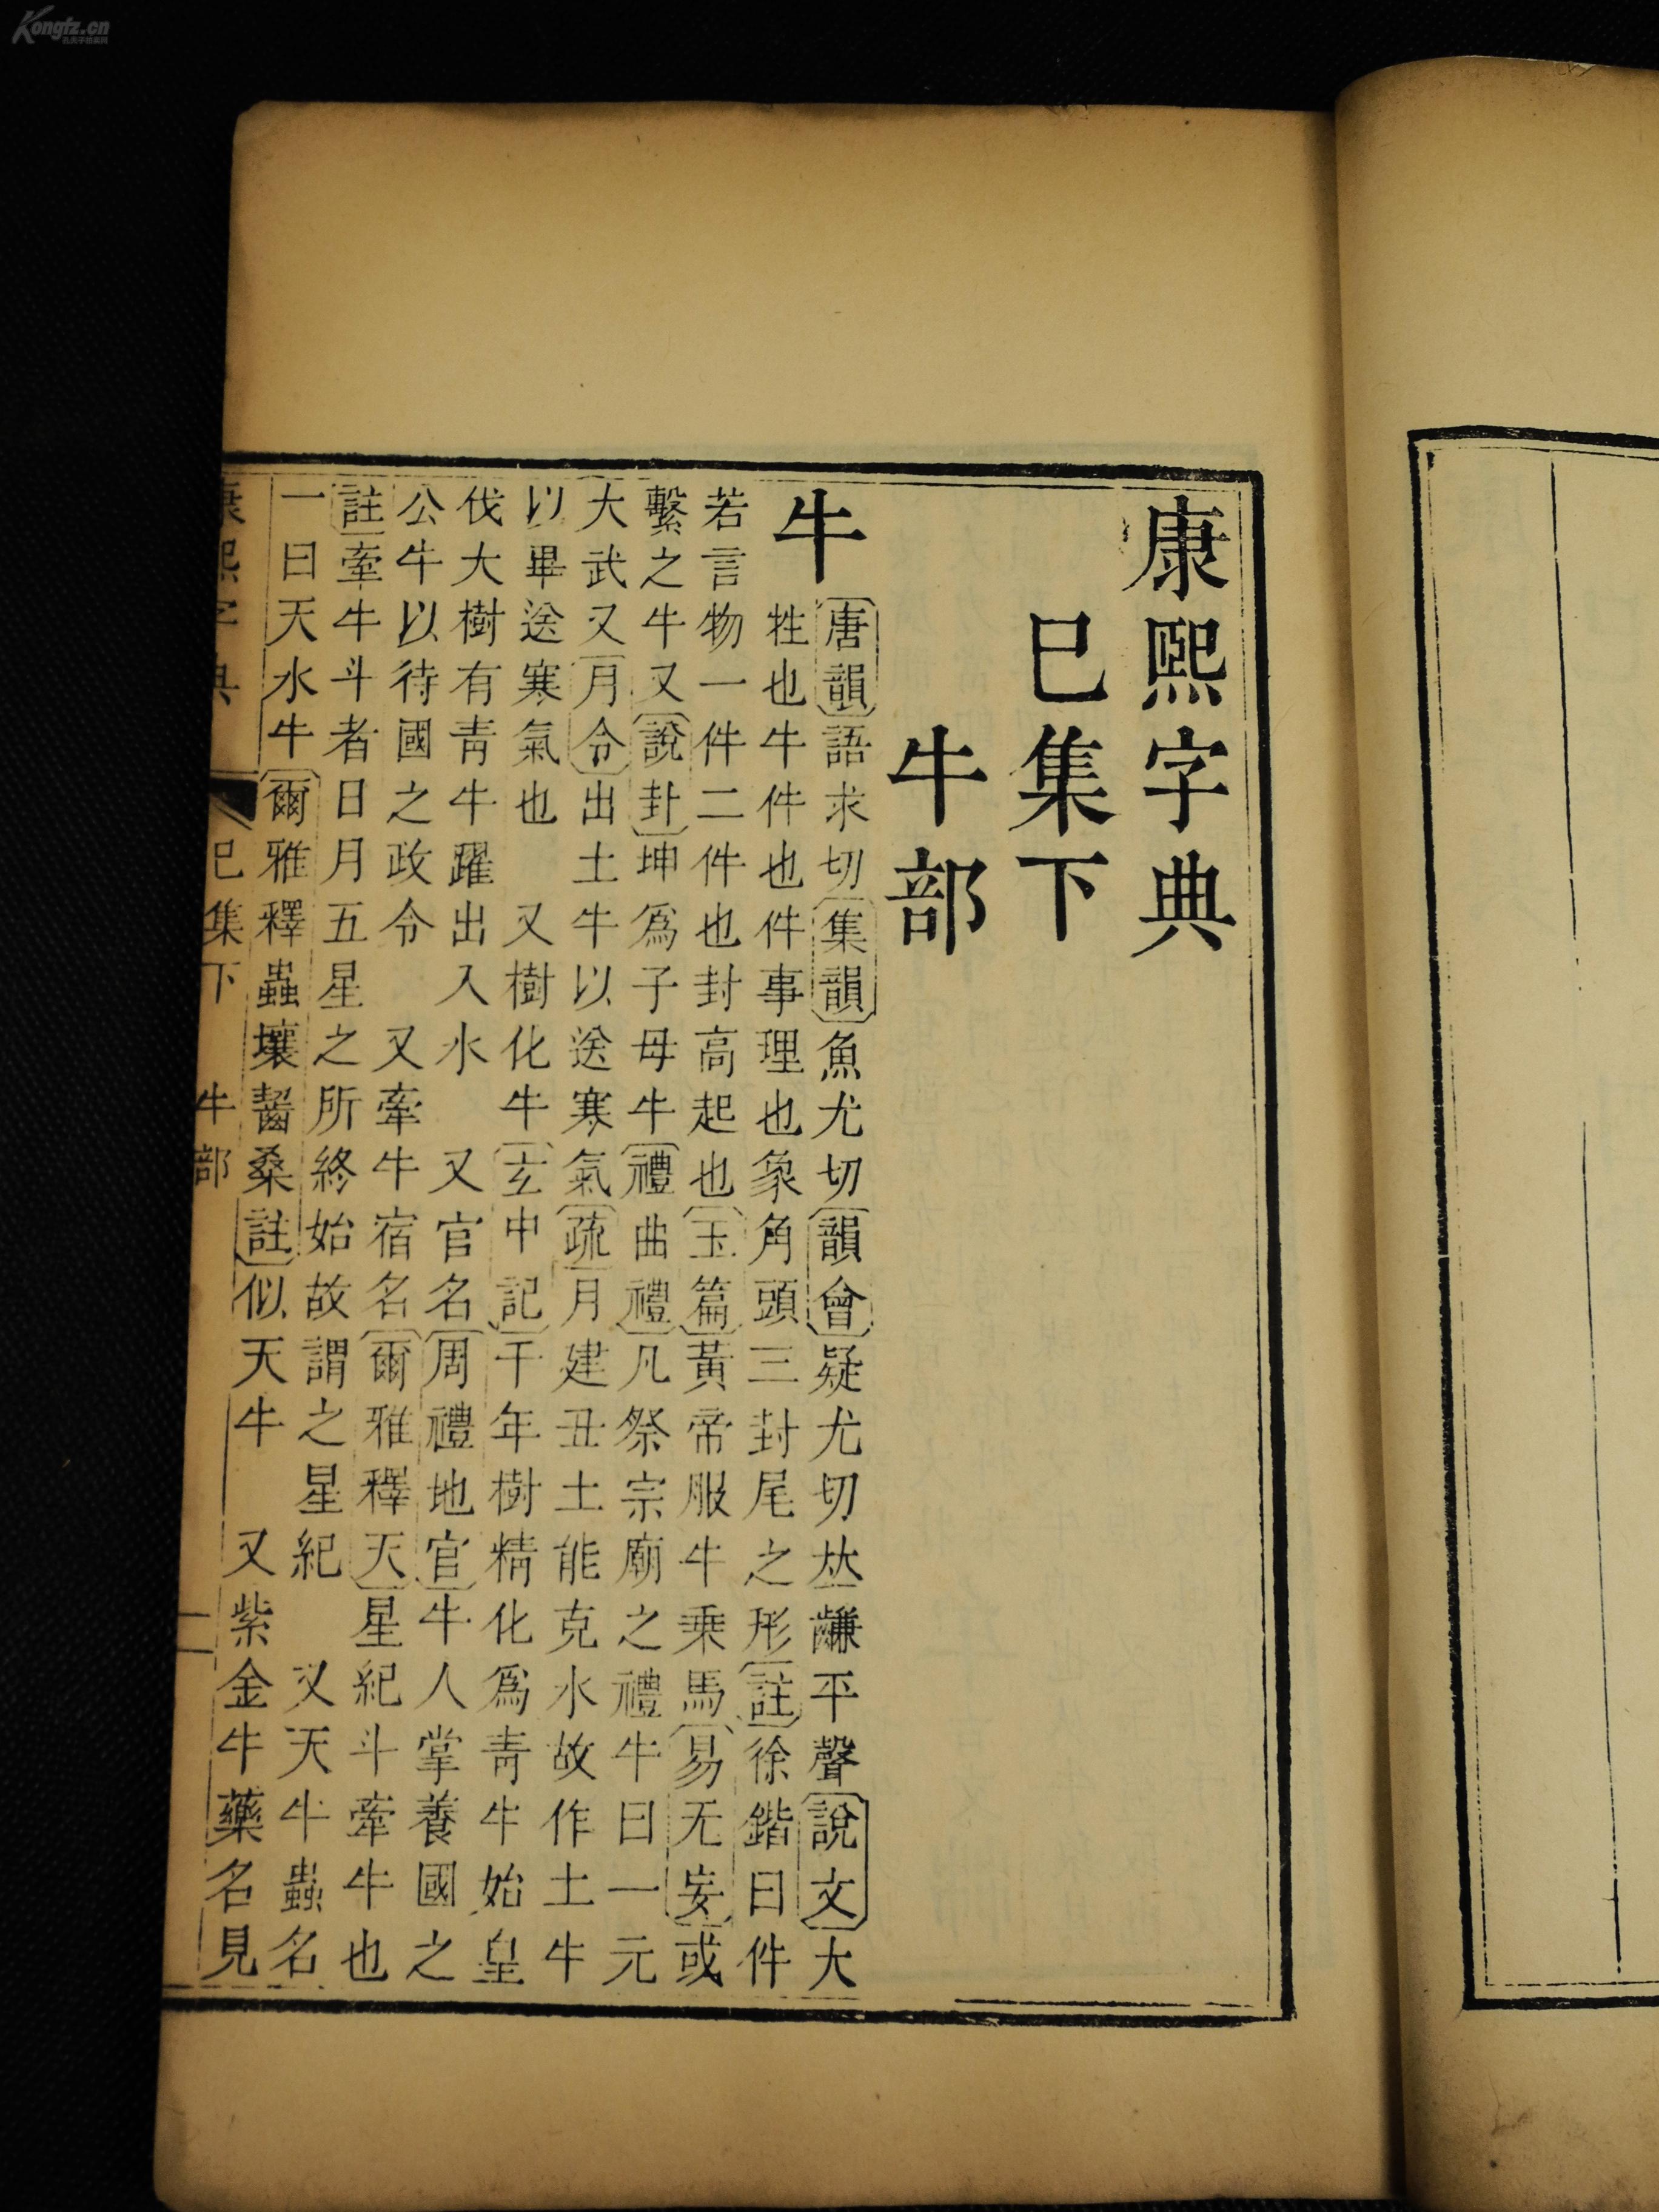 康熙字典
巳集下
牛部
牛
唐韻語求切集韻魚尤切韻會疑尤切𠀤齾平聲說文大
牲也牛件也件事理也象角頭三封尾之形註徐鍇曰件
若言物一件二件也封高起也玉篇黃帝服牛乗馬易无妄或
繫之牛又說卦坤爲子母牛禮曲禮凡祭宗廟之禮牛曰一元
大武又月令出土牛以送寒氣疏月建丑土能克水故作土牛
以畢送寒氣也 又樹化牛玄中記千年樹精化爲靑牛始皇
伐大樹有靑牛躍出入水 又官名周禮地官牛人掌養國之
公牛以待國之政令 又牽牛宿名爾雅釋天星紀斗牽牛也
註牽牛斗者日月五星之所終始故謂之星紀 又天牛蟲名
一曰天水牛爾雅釋蟲壤齧桑註似天牛 又紫金牛藥名見
康熙字典 巳集下 牛部 二
Kongfz.cn
孔夫子旧书网